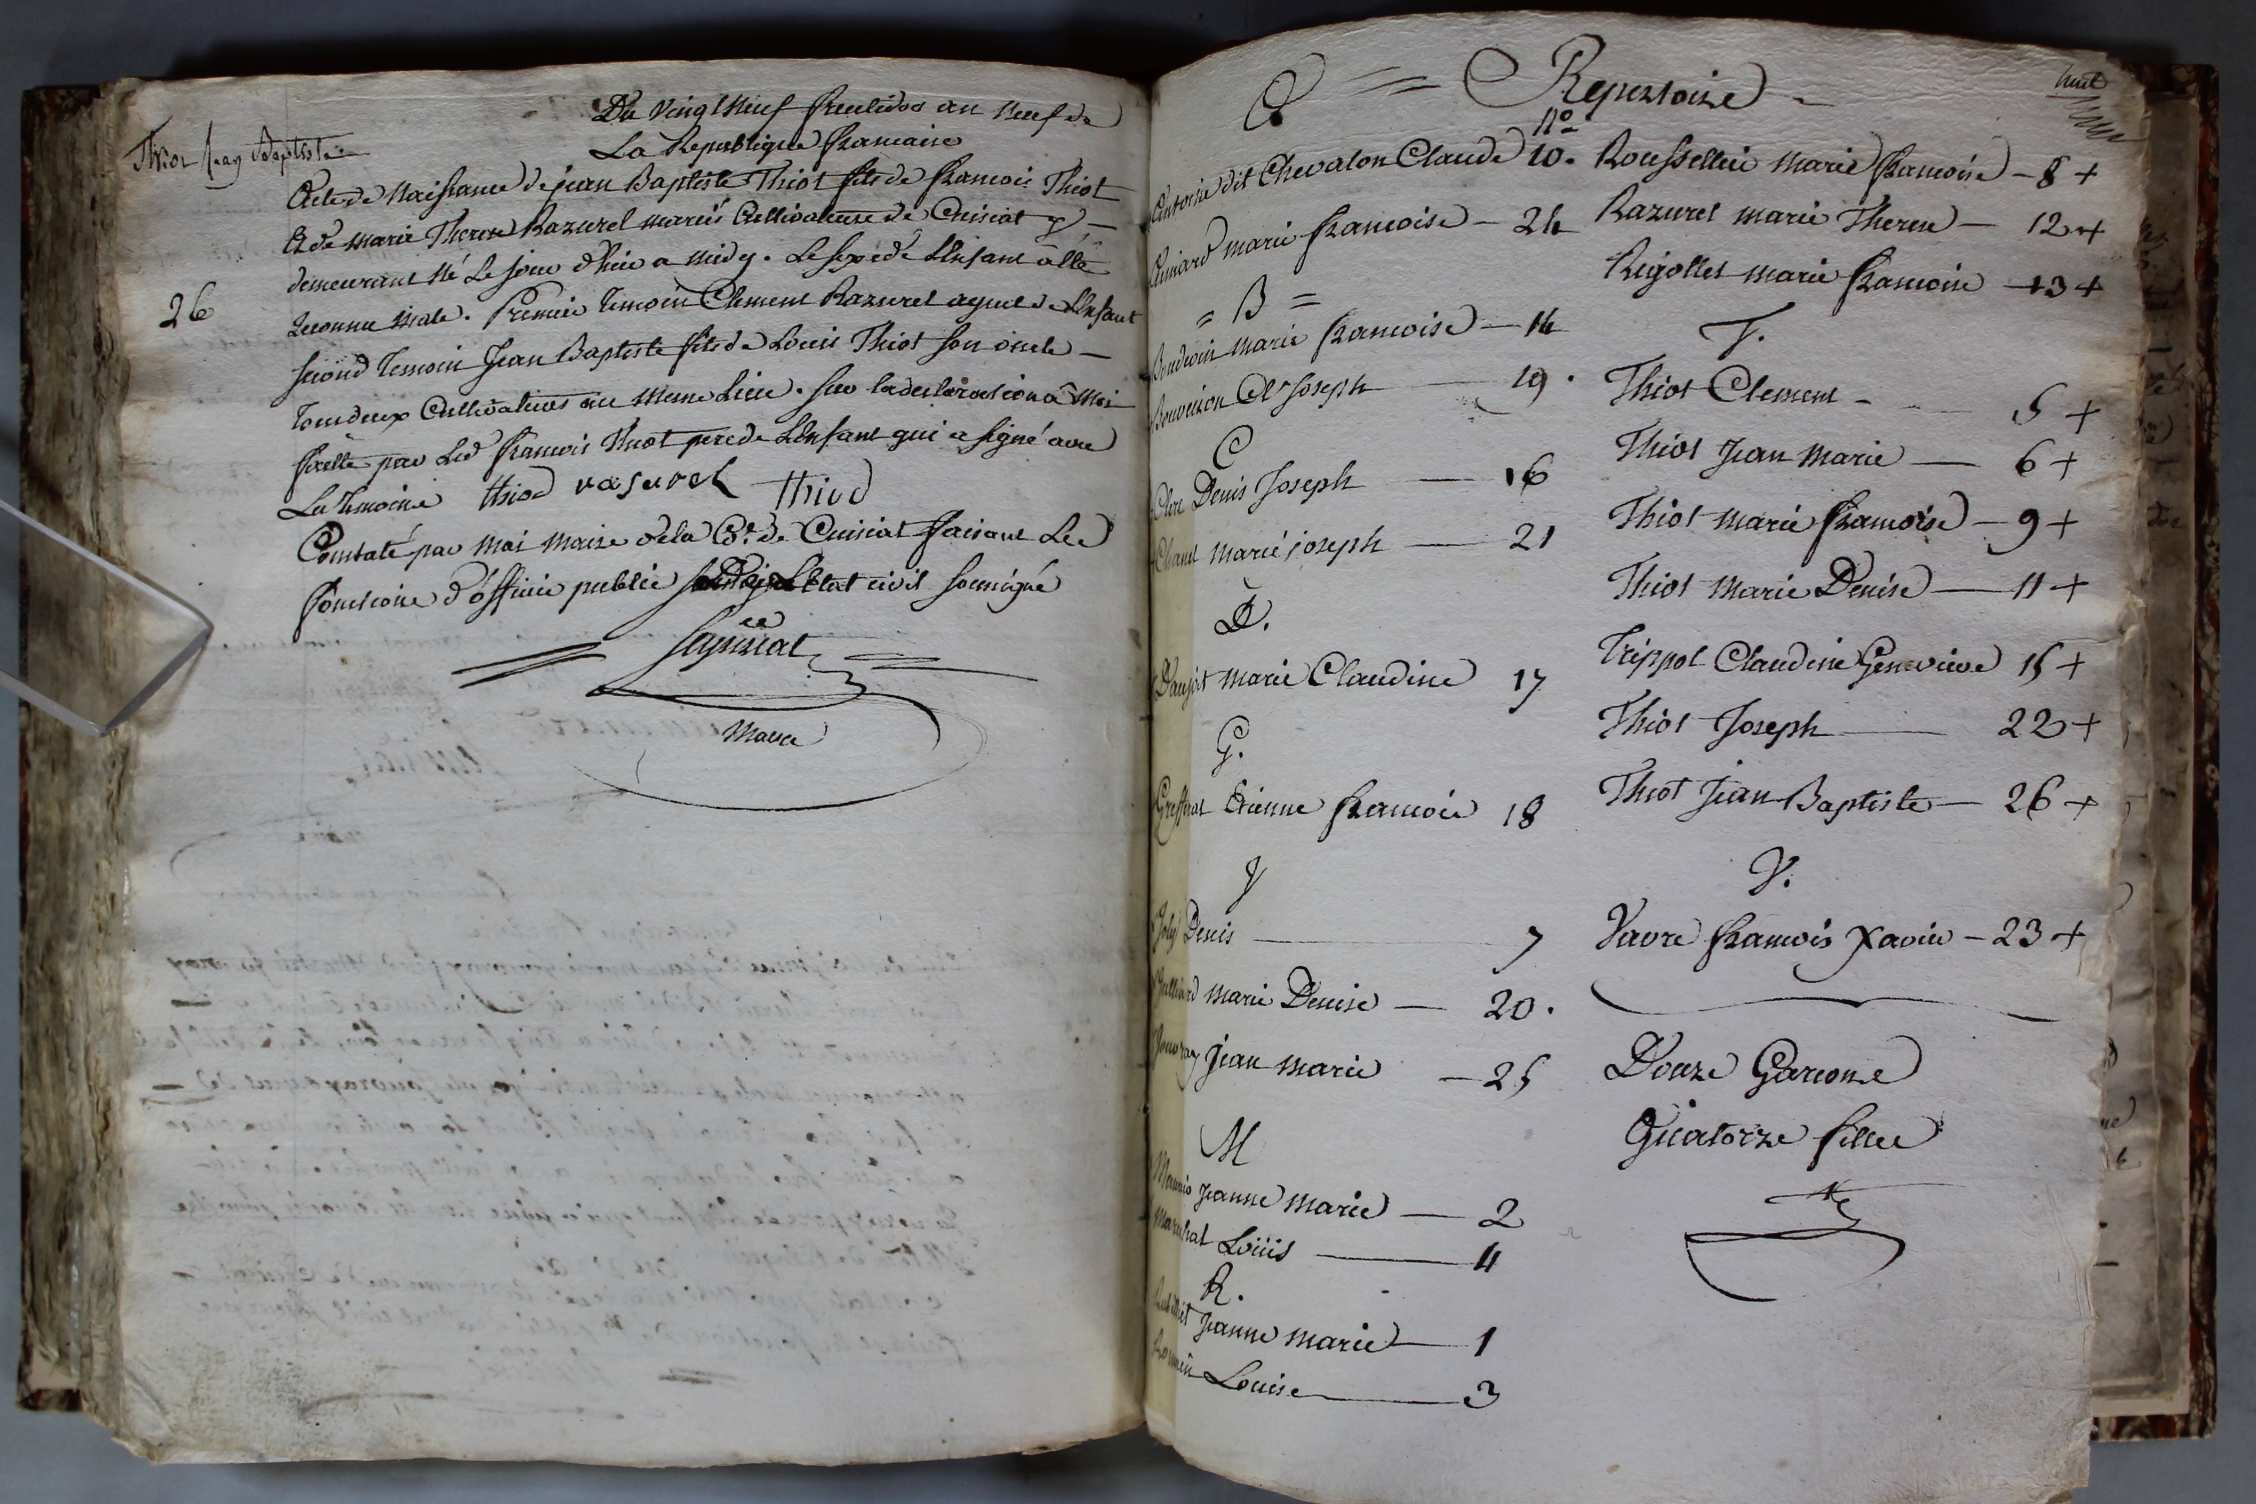 Thiot Jean Baptiste
26
Du Vingt Neuf fructidor an Neuf de
La Republique francaise
Acte de Naissance de jean Baptiste Thiot fils de francois Thiot
Et de Marie Therese Razurel mariés Cultivateurs de Cuisiat y
demeurant Né Le jour d'hier a midy. Le sexe de L'Enfant a été
Reconnu Male. Premier temoin Clement Razurel ayeul de L'Enfant
second temoin Jean Baptiste fils de Louis Thiot son oncle
tous deux Cultivateurs au Meme Lieu. sur la declaration a Moi
faitte par Led francois Thiot pere de L'Enfant qui a signé avec
Les temoins thiod rasurel thiod
Constaté par moi maire de la Co.e de Cuisiat faisant Les
fonctions d'officier public de L'Etat civil soussigné
Maire
A = Repertoire
huit
No
Antoine dit Chevalon Claude 10.
marie francoise — 24
= B =
Boudouin marie francoise — 14
Bouveiron Cl Joseph — 19.
C
Clerc Denis Joseph — 16
Chanel marie joseph — 21
D.
marie Claudine 17
G.
Greffet Etienne francois 18
J
Joly Denis — 7
Julliard marie Denise — 20.
Jouvray Jean marie — 25
M
jeanne marie — 2
Marechal Loüis — 4
R.
Jeanne marie — 1
Louise — 3
Rousselle marie francoise — 8 +
Razurel marie Therese — 12 +
Rigollet marie francoise — 13 +
T.
Thiot Clement — 5 +
Thiot Jean marie — 6 +
Thiot marie francoise — 9 +
Thiot marie Denise — 11 +
Trippot Claudine Genevieve 15 +
Thiot Joseph — 22 +
Thiot Jean Baptiste — 26 +
V.
Vavre francois Xavier — 23 +
Douze Garcons
Quatorze filles